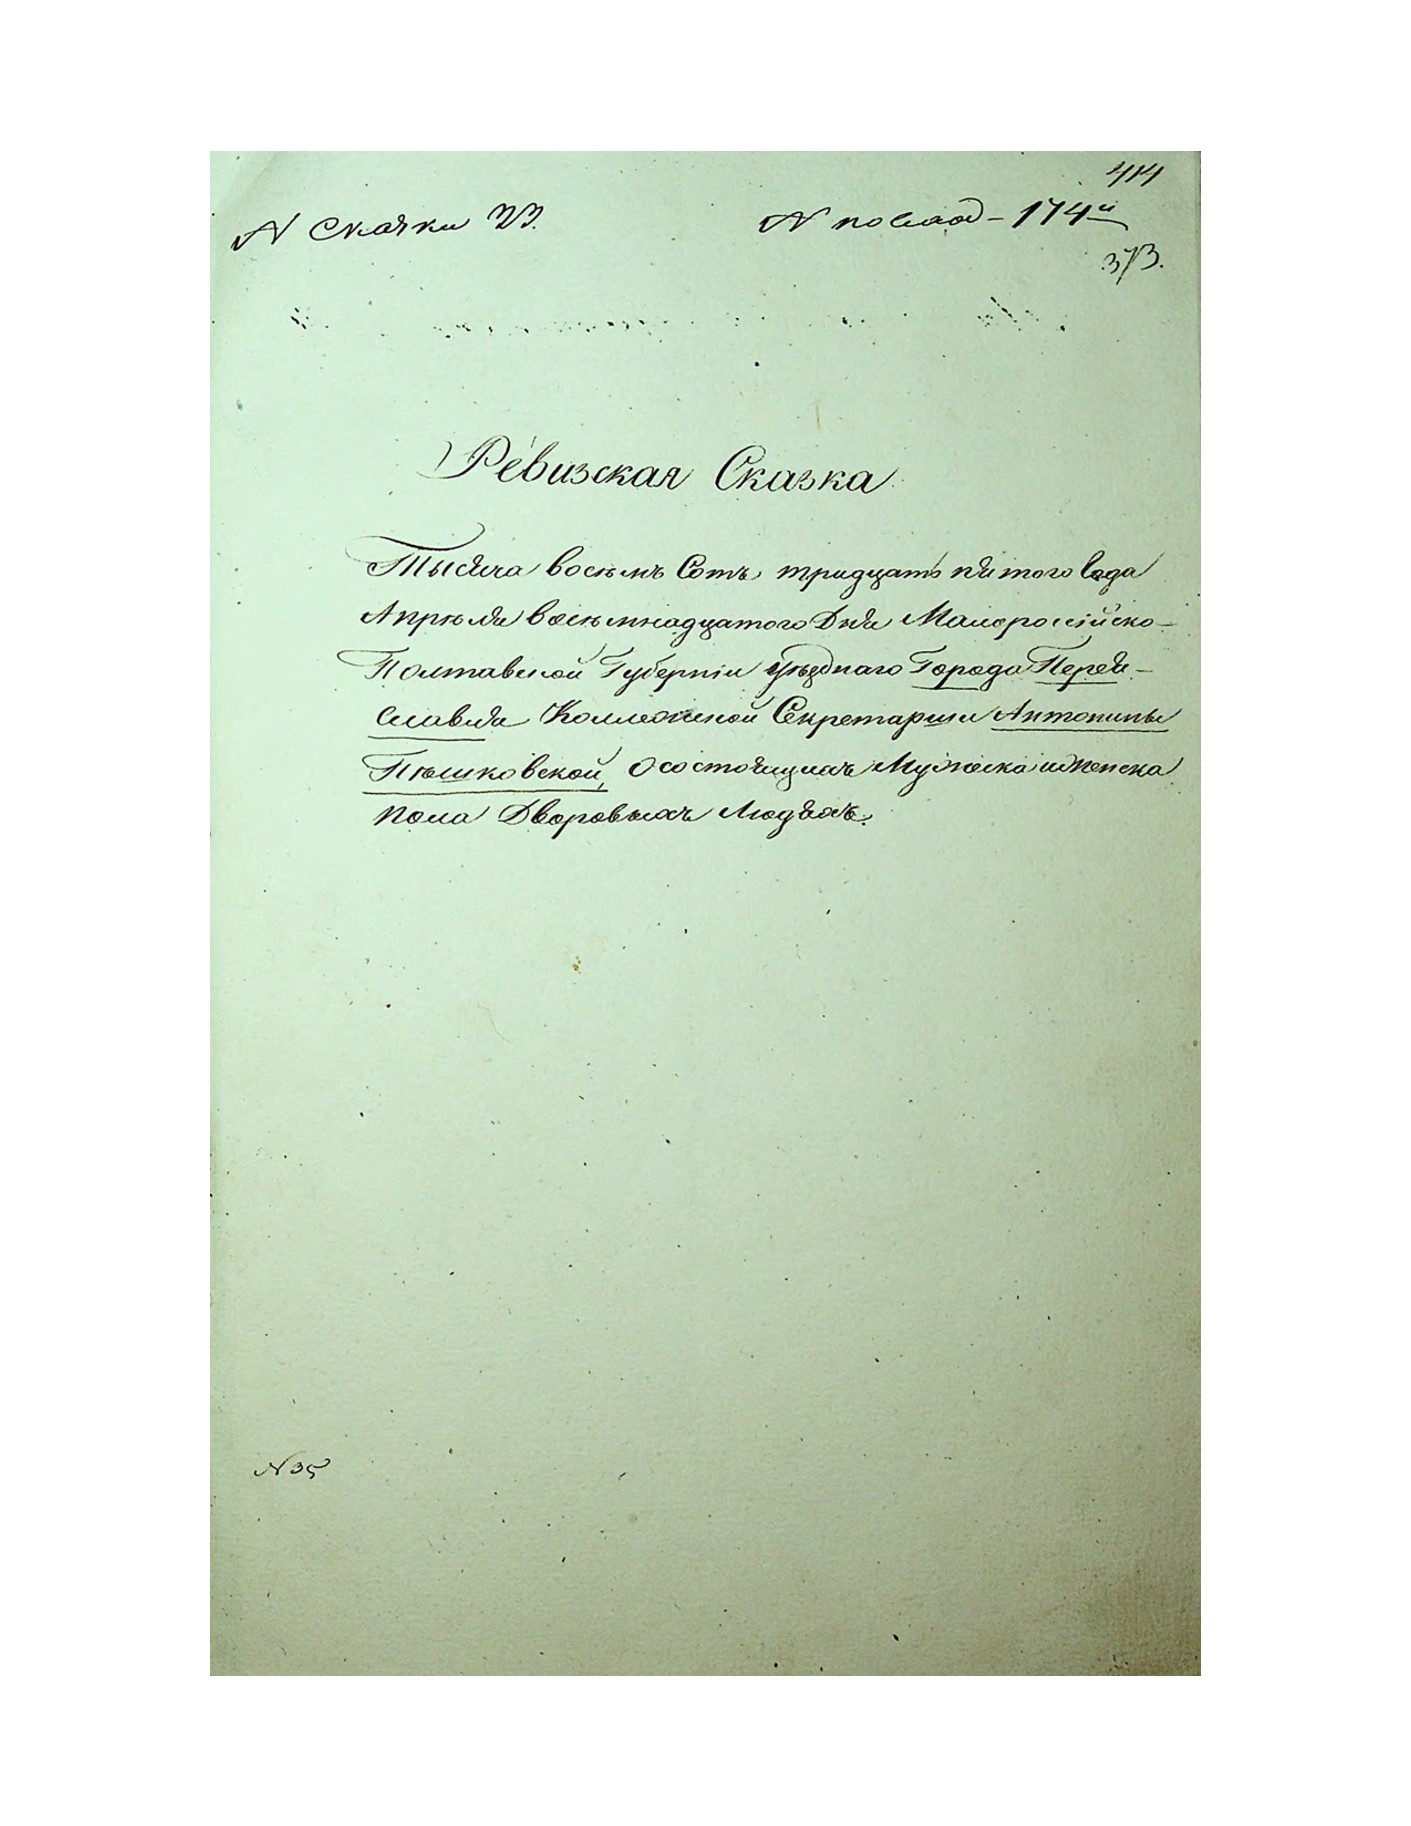 414
N Сказки 33.
N по слѣд – 174й
373.
Ревизская Сказка
Тысяча восемь Сотъ тридцать пятого Года
Апрѣля восемнадцатого Дня Малороссійско-
Полтавской Губерніи уѣзднаго Города Перея-
славля Коллежской Секретарши Антонины
Пѣшковской, о состоящихъ Мужеска и Женска
пола Дворовыхъ Людяхъ.
N 35